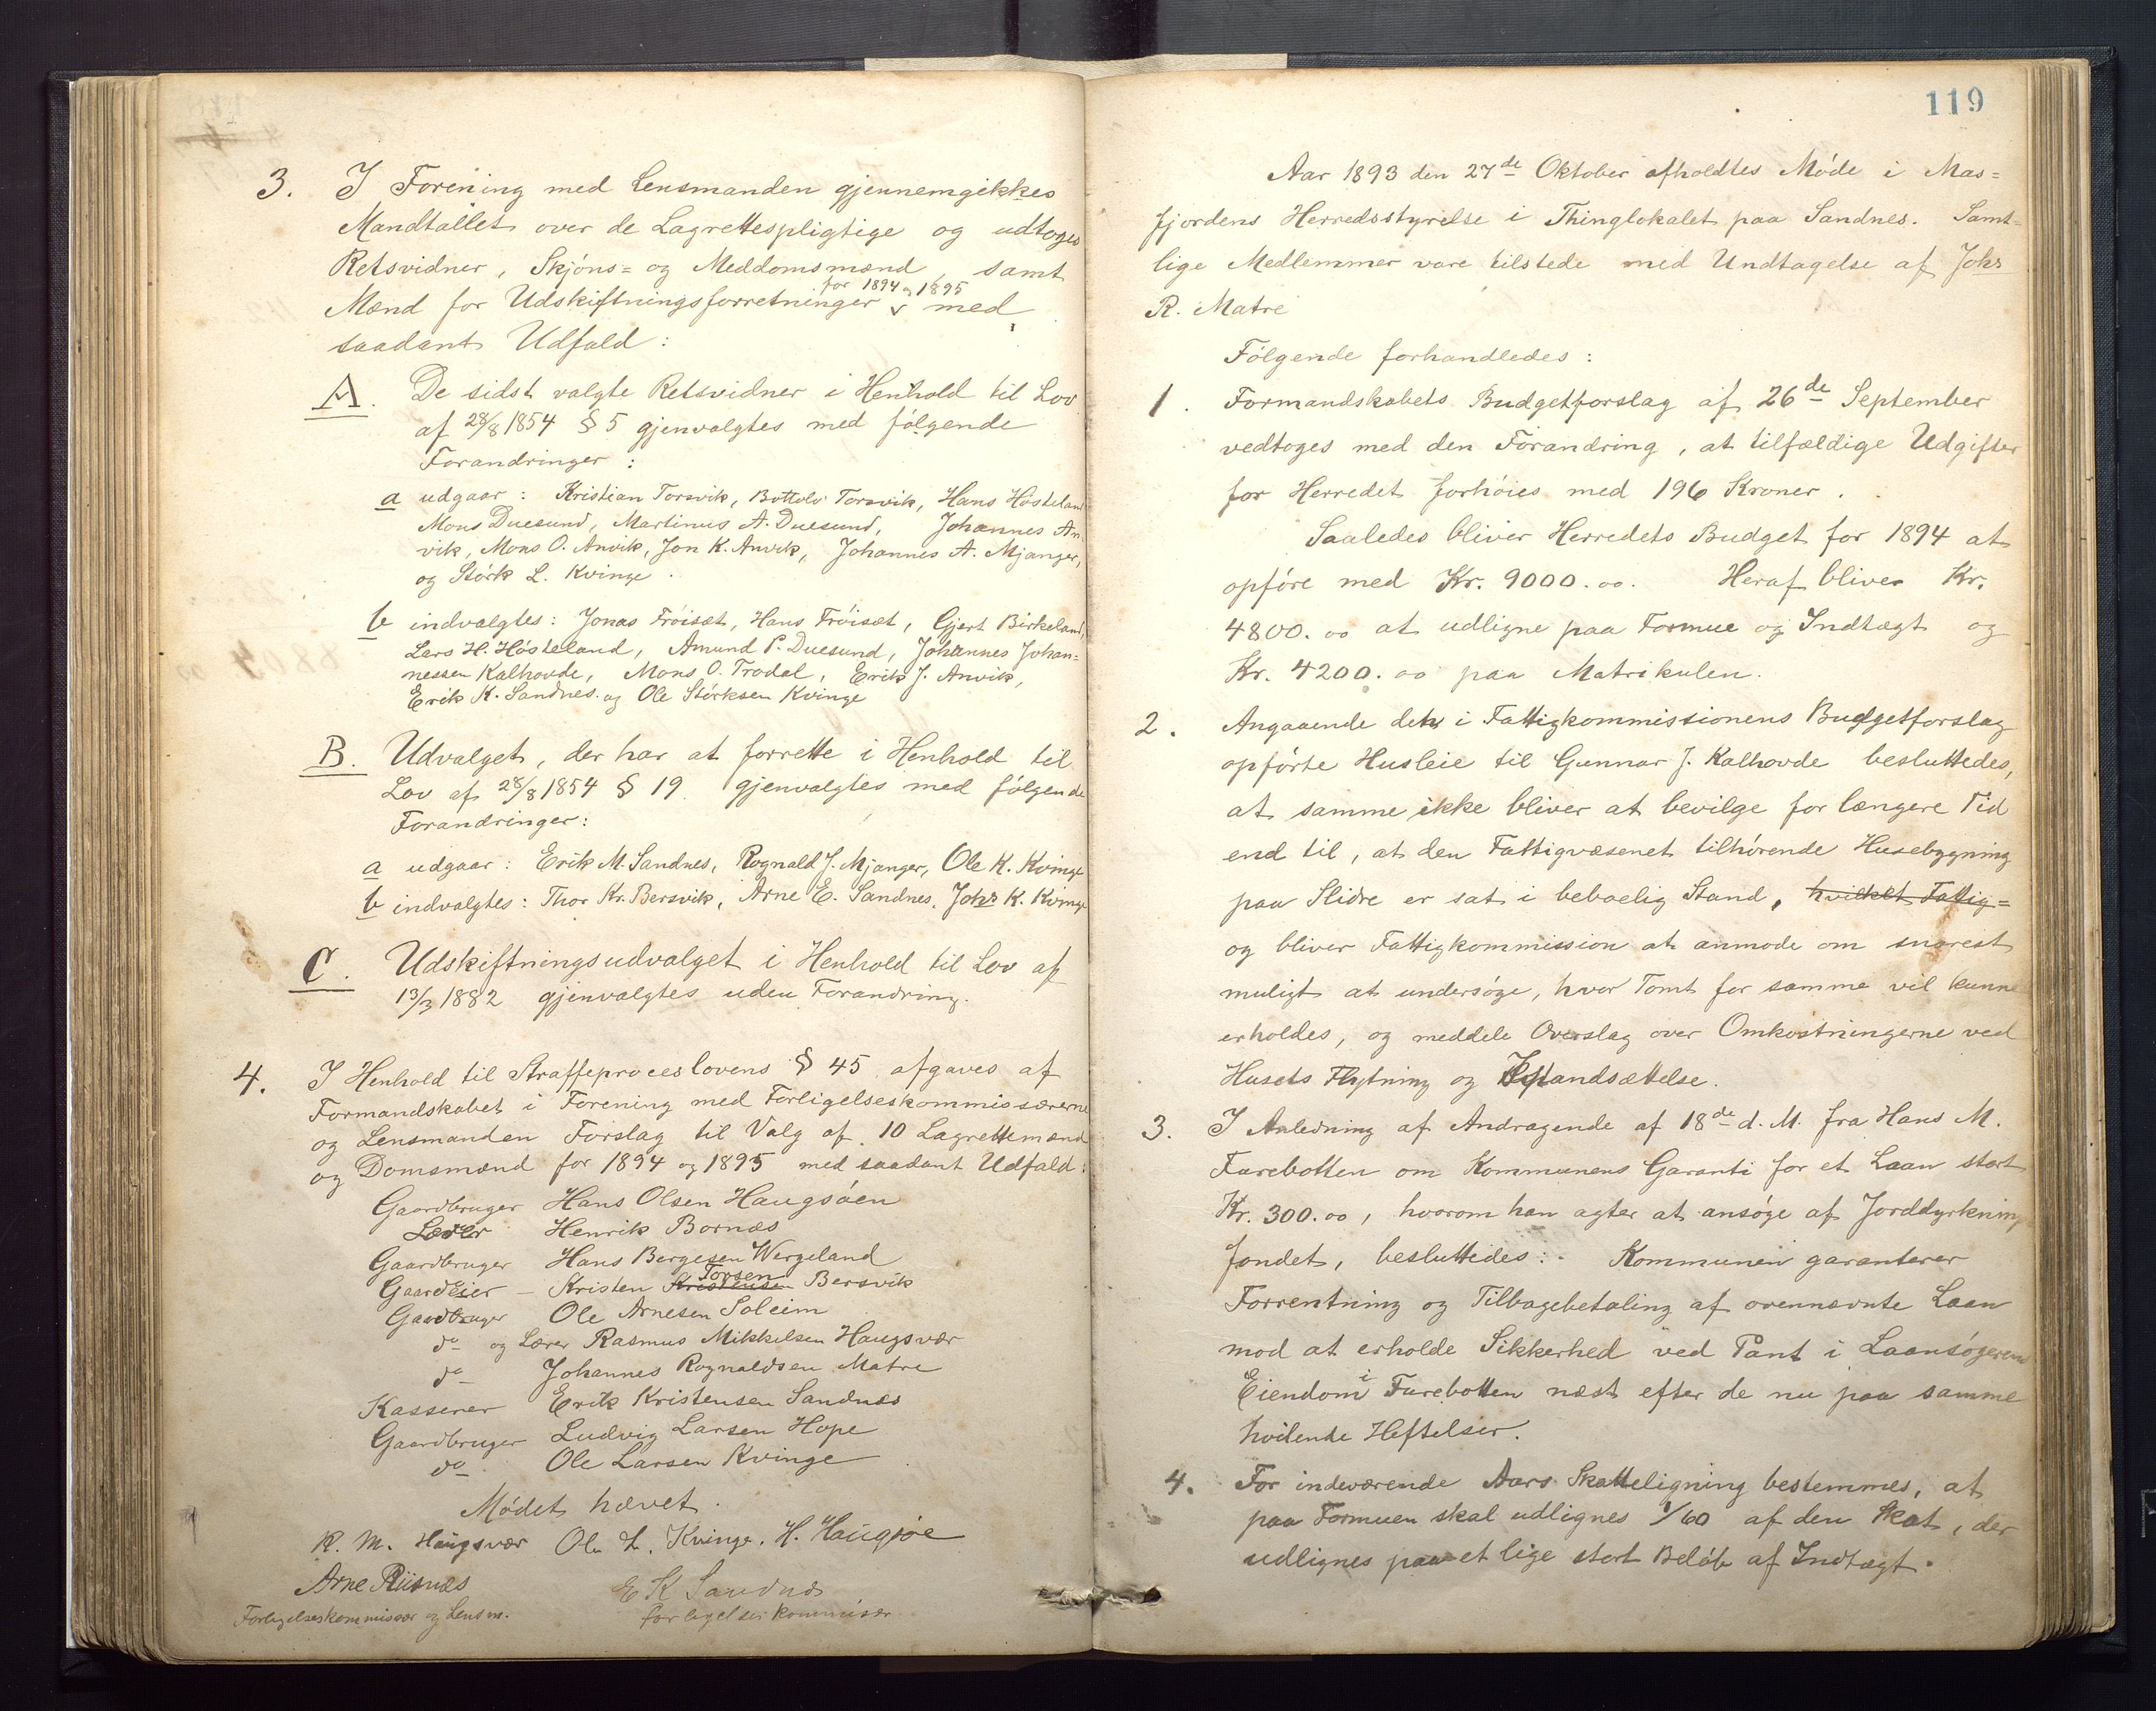 3. I Forening med Lensmanden gjennemgikkes
Mandtallet over de Lagrettespligtige og udtoges
Retsvidner, Skjöns= og Meddomsmænd, samt
Mænd for Udskiftningsforretninger for 1894 og 1895 med
saadant Udfald:
A. De sidst valgte Retsvidner i Henhold til Lov
af 28/8 1854 § 5 gjenvalgtes med fölgende
Forandringer:
a udgaar: Kristian Torsvik, Bottolv Torsvik, Hans Hösteland
Mons Duesund, Martinus A. Duesund, Johannes An-
vik, Mons O. Anvik, Jon K. Anvik, Johannes A. Mjanger,
og Störk L. Kvinge.
b indvalgtes: Jonas Fröiset, Hans Fröiset, Gjert Birkeland,
Lars H. Hösteland, Amund P. Duesund, Johannes Johan=
nessen Kalhovde, Mons O. Trodal, Erik J. Anvik,
Erik K. Sandnes og Ole Störksen Kvinge
B. Udvalget, der har at forrette i Henhold til
Lov af 28/8 1854 § 19 gjenvalgtes med fölgende
Forandringer:
a udgaar: Erik M. Sandnes, Rognald J. Mjanger, Ole K. Kvinge
b indvalgtes: Thor Kr. Bersvik, Arne E. Sandnes, Johs K. Kvinge
C. Udskiftningsudvalget i Henhold til Lov af
13/3 1882 gjenvalgtes uden Forandring.
4. I Henhold til Straffeproceslovens § 45 afgaves af
Formandskabet i Forening med Forligelseskommissærerne
og Lensmanden Forslag til Valg af 10 Lagrettemænd
og Domsmænd for 1894 og 1895 med saadant Udfald:
Gaardbruger Hans Olsen Haugsöen
Lærer Henrik Bornæs
Gaardbruger Hans Bergesen Wergeland
Gaardeier - Kristen Kristensen Torsen Bersvik
Gardbruger Ole Arnesen Soleim
do og Lærer Rasmus Mikkelsen Haugsvær
do Johannes Rognaldsen Matre
Kasserer Erik Kristensen Sandnæs
Gaardbruger Ludvig Larsen Hope
do Ole Larsen Kvinge
Mödet hævet.
R. M. Haugsvær Ole L. Kvinge. H. Haugsöe
Arne Riisnæs E K Sandnæs
Forligelseskommissær og Lensm. forligelses kommisær
119
Aar 1893 den 27de Oktober afholdtes Möde i Mas=
fjordens Herredsstyrelse i Thinglokalet paa Sandnes. Samt=
lige Medlemmer vare tilstede med Undtagelse af Johs
R. Matre
Fölgende forhandledes:
1. Formandskabets Budgetforslag af 26de September
vedtoges med den Forandring, at tilfældige Udgifter
for Herredet forhöies med 196 Kroner.
Saaledes bliver Herredets Budget for 1894 at
opföre med Kr. 9000.00. Heraf bliver Kr.
4800.00 at udligne paa Formue og Indtægt og
Kr. 4200.00 paa Matrikulen.
2. Angaaende det i Fattigkommissionens Budgetforslag
opförte Husleie til Gunnar J. Kalhovde besluttedes,
at samme ikke bliver at bevilge for længere Tid
end til, at den Fattigvæsenet tilhörende Husebygning
paa Slidre er sat i beboelig Stand, hvilket Fattig=
og bliver Fattigkommission at anmode om snarest
muligt at undersöge, hvor Tomt for samme vil kunne
erholdes, og meddele Overslag over Omkostningerne ved
Husets Flytning og Istandsættelse.
3. I Anledning af Andragende af 18de d. M. fra Hans M.
Furebotten om Kommunens Garanti for et Laan stort
Kr. 300.00, hvorom han agter at ansöge af Jorddyrknings
fondet, besluttedes: Kommunen garanterer
Forrentning og Tilbagebetaling af ovennævnte Laan
mod at erholde Sikkerhed ved Pant i Laansögerens
Eiendom i Furebotten næst efter de nu paa samme
hvilende Heftelser.
4. For indeværende Aars Skatteligning bestemmes, at
paa Formuen skal udlignes 1/60 af den Skat, der
udlignes paa et lige stort Belöb af Indtægt.